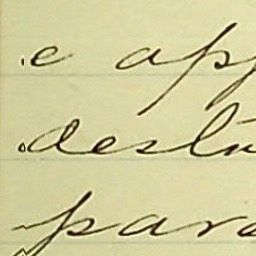 e app
desti
para